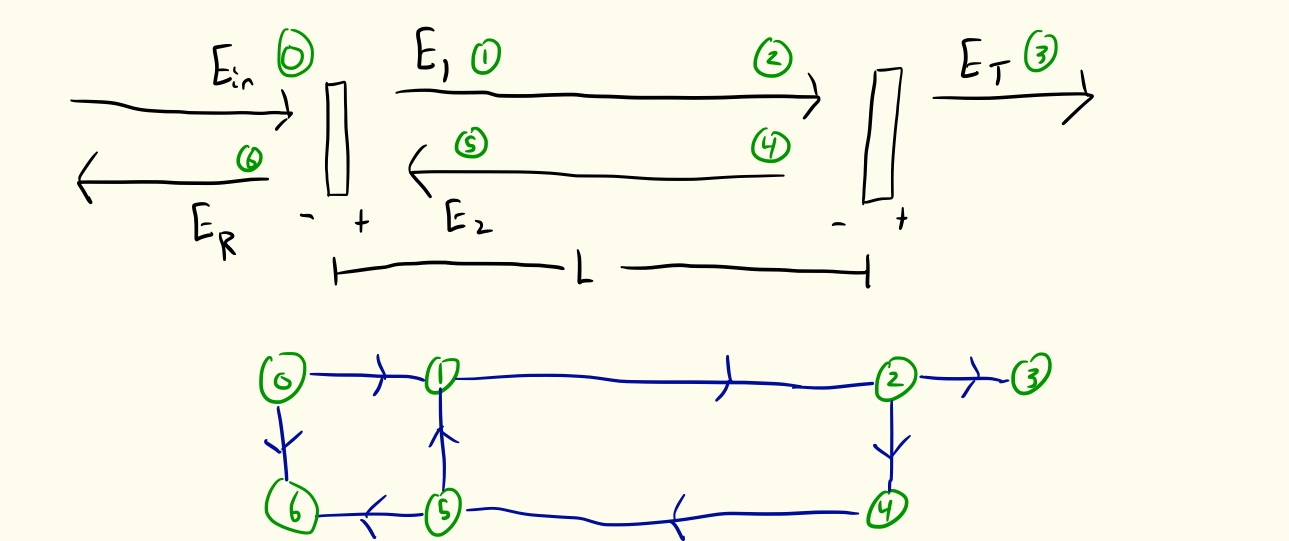 E_in ⓪ E_1 ① ② E_T ③
⑥ ⑤ ④
E_R - + E_2 - +
L
⓪ ① ② ③
⑥ ⑤ ④